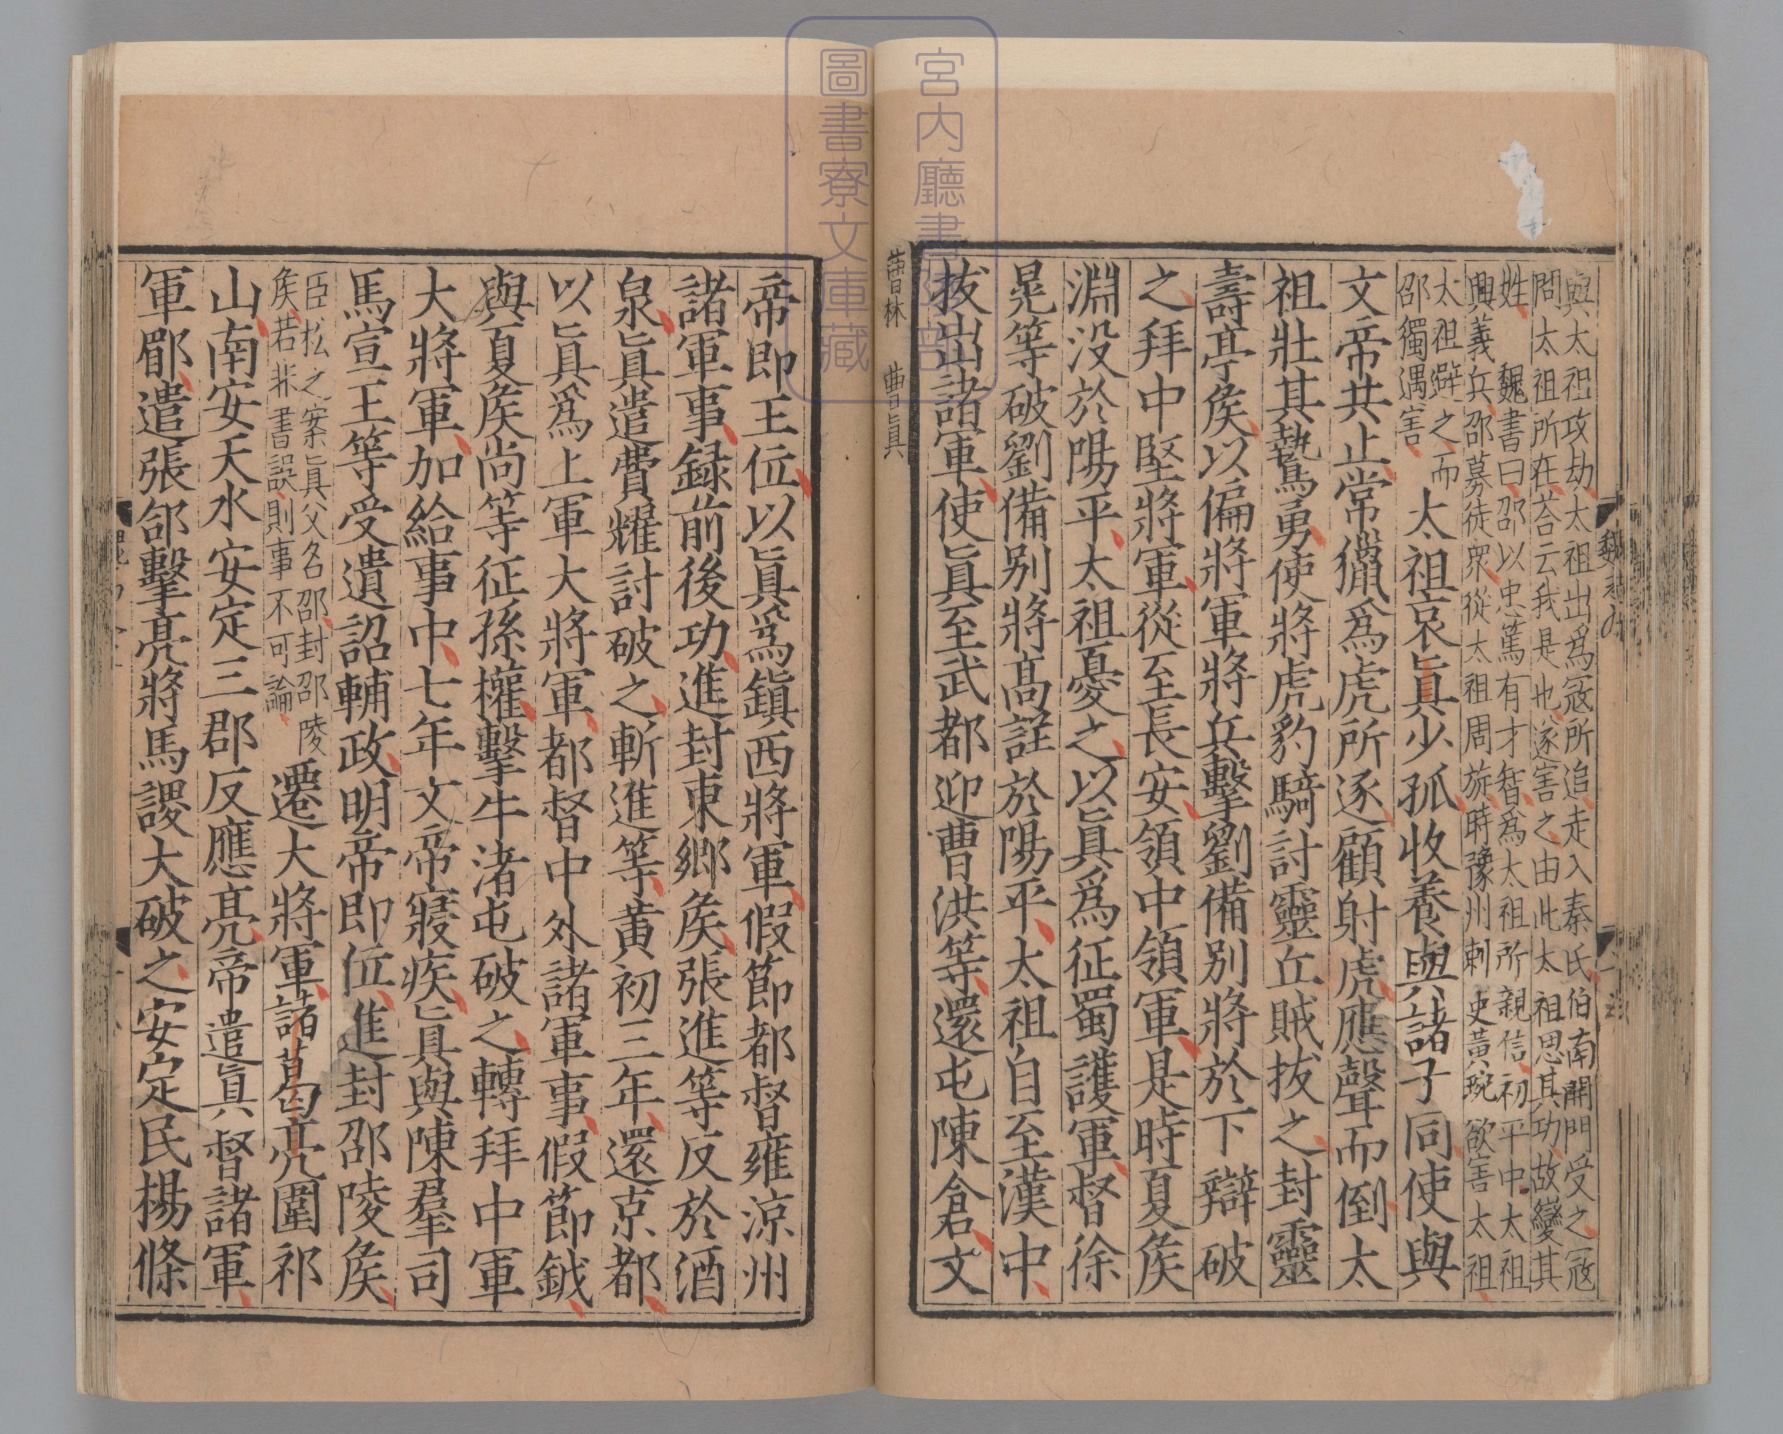 與太祖攻劫太祖出爲冦所追走入秦氏伯南開門受之冦
問太祖所在荅云我是也遂害之由此太祖思其功故變其
姓 魏書曰邵以忠篤有才智爲太祖所親信初平中太祖
興義兵邵募徒衆從太祖周旋時豫州刺史黃琬欲害太祖
太祖避之而
邵獨遇害
太祖哀眞少孤收養與諸子同使與
文帝共止常獵爲虎所逐顧射虎應聲而倒太
祖壯其鷙勇使將虎豹騎討靈丘賊拔之封靈
壽亭矦以偏將軍將兵擊劉備別將於下辯破
之拜中堅將軍從至長安領中領軍是時夏矦
淵没於陽平太祖憂之以眞爲征蜀護軍督徐
晃等破劉備別將高詳於陽平太祖自至漢中
拔出諸軍使眞至武都迎曹洪等還屯陳倉文
帝即王位以眞爲鎭西將軍假節都督雍涼州
諸軍事録前後功進封東鄉矦張進等反於酒
泉眞遣費耀討破之斬進等黄初三年還京都
以眞爲上軍大將軍都督中外諸軍事假節鉞
與夏矦尚等征孫權擊牛渚屯破之轉拜中軍
大將軍加給事中七年文帝寢疾眞與陳羣司
馬宣王等受遺詔輔政明帝即位進封邵陵矦
臣松之案眞父名邵封邵陵
矦若非書誤則事不可論
遷大將軍諸葛亮圍祁
山南安天水安定三郡反應亮帝遣眞督諸軍
軍郿遣張郃擊亮將馬謖大破之安定民楊條
魏志九
曹眞
宮内廳書陵部
圖書寮文庫藏